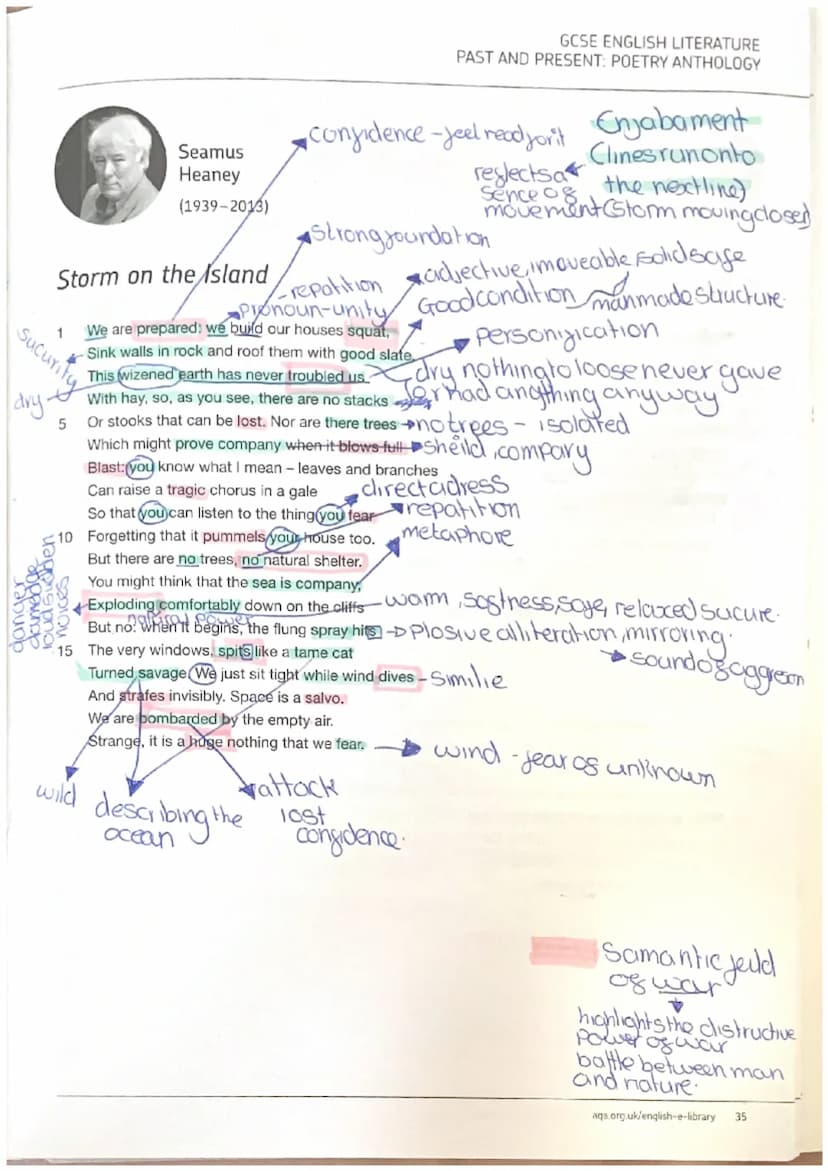 GCSE ENGLISH LITERATURE
PAST AND PRESENT: POETRY ANTHOLOGY
Seamus
Heaney
(1939–2013)
confidence - feel ready for it
Enjabament
(lines run onto
the next line)
reflects a
sence of
movement (storm moving closer)
strong foundation
Storm on the Island
- repatition
pronoun-unity
adjective, imoveable, solid safe
Good condition
manmade structure.
1 We are prepared: we build our houses squat,
Sink walls in rock and roof them with good slate.
This wizened earth has never troubled us
With hay, so, as you see, there are no stacks
5 Or stooks that can be lost. Nor are there trees
Which might prove company when it blows full
Blast: you know what I mean – leaves and branches
Can raise a tragic chorus in a gale
So that you can listen to the thing you fear
10 Forgetting that it pummels your house too.
But there are no trees, no natural shelter.
You might think that the sea is company,
Exploding comfortably down on the cliffs
But no: when it begins, the flung spray hits
15 The very windows, spits like a tame cat
Turned savage. We just sit tight while wind dives
And strafes invisibly. Space is a salvo.
We are bombarded by the empty air.
Strange, it is a huge nothing that we fear.
sucurity
dry
personification
dry nothing to loose never gave
or had anything anyway
no trees - isolated
sheild, company
direct adress
repatition
metaphore
danger
damage
loud sudden
noices
natural power
warm, softness, safe, relaxed sucure.
plosive alliteration, mirroring.
sound of aggresion
similie
wind - fear of unknown
wild
describing the
ocean
attack
lost
confidence.
Samantic feild
of war
highlights the distructive
power of war
battle between man
and nature.
aqa.org.uk/english-e-library 35